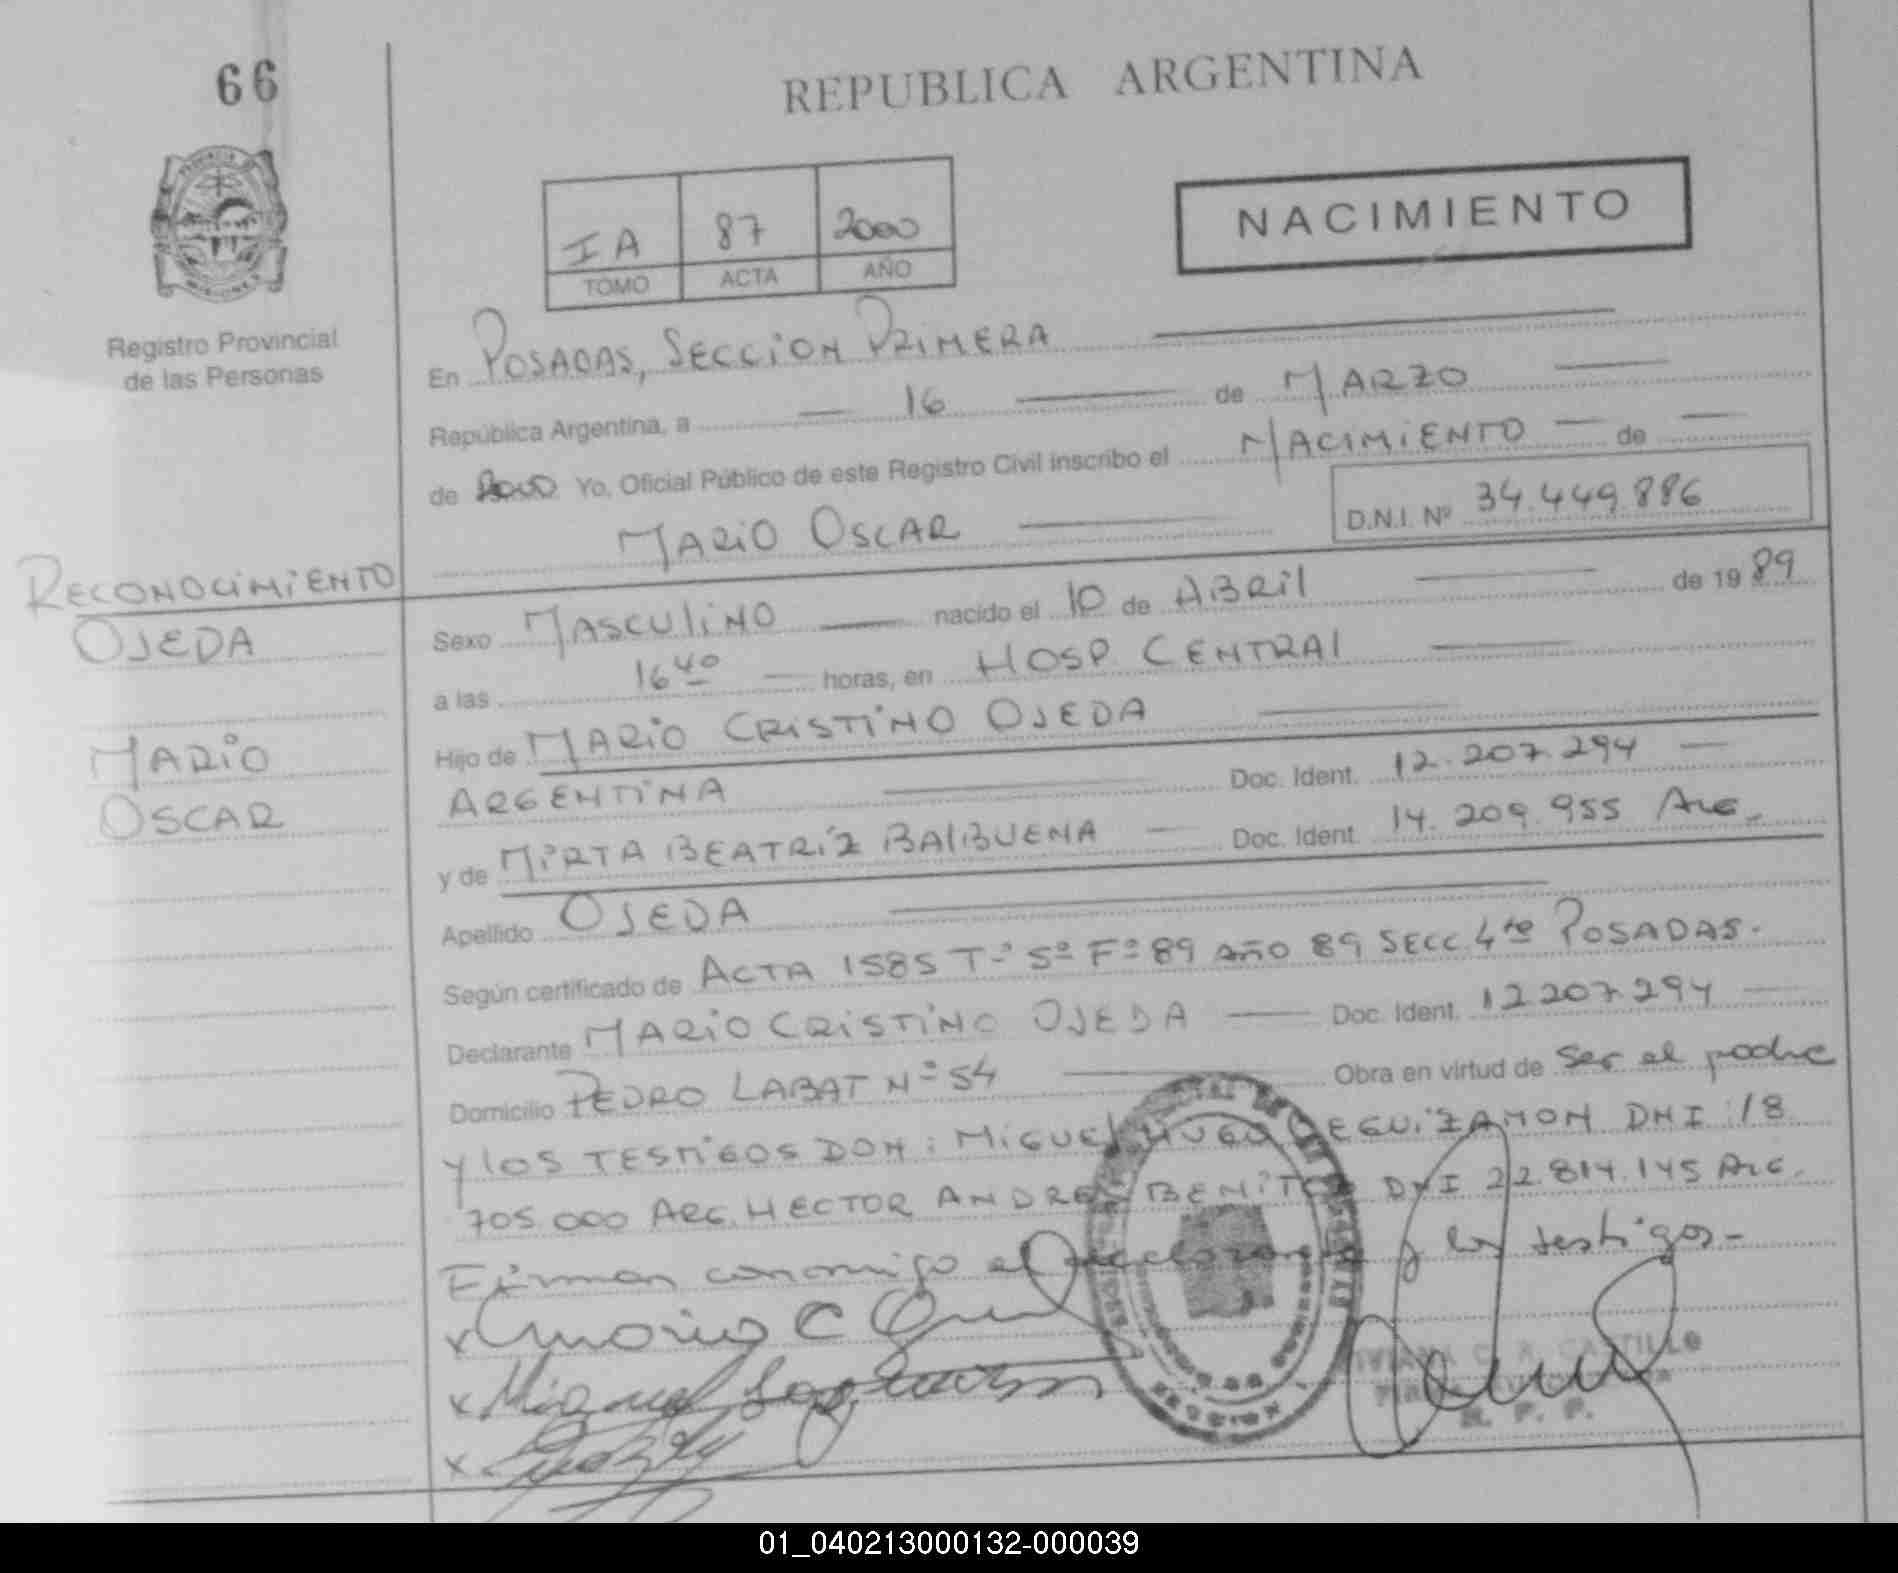 66
REPUBLICA ARGENTINA
NACIMIENTO
IA 87 2000
TOMO ACTA AÑO
Registro Provincial
de las Personas
En POSADAS, SECCION PRIMERA
República Argentina, a 16 de MARZO
de 2000 Yo, Oficial Público de este Registro Civil inscribo el NACIMIENTO de
MARIO OSCAR
D.N.I. Nº 34.449.886
RECONOCIMIENTO
OJEDA
MARIO
OSCAR
Sexo MASCULINO nacido el 10 de ABRIL de 1989
a las 16 40 horas, en HOSP. CENTRAL
Hijo de MARIO CRISTINO OJEDA
ARGENTINA Doc. Ident. 12.207.294
y de MIRTA BEATRIZ BALBUENA Doc. Ident. 14.209.955 ARG.
Apellido OJEDA
Según certificado de ACTA 1585 Tº 5º Fº 89 AÑO 89 SECC. 4ta POSADAS.
Declarante MARIO CRISTINO OJEDA Doc. Ident. 12207.294
Domicilio PEDRO LABAT Nº 54 Obra en virtud de ser el padre
Y LOS TESTIGOS DON: MIGUEL HUGO LEGUIZAMON DNI 18
705.000 ARG. HECTOR ANDRES BENITEZ DNI 22.814.145 ARG.
Firman conmigo el declarante y los testigos-
x Mario C
x Miguel
x
CASTILLO
R. P. P.
01_040213000132-000039